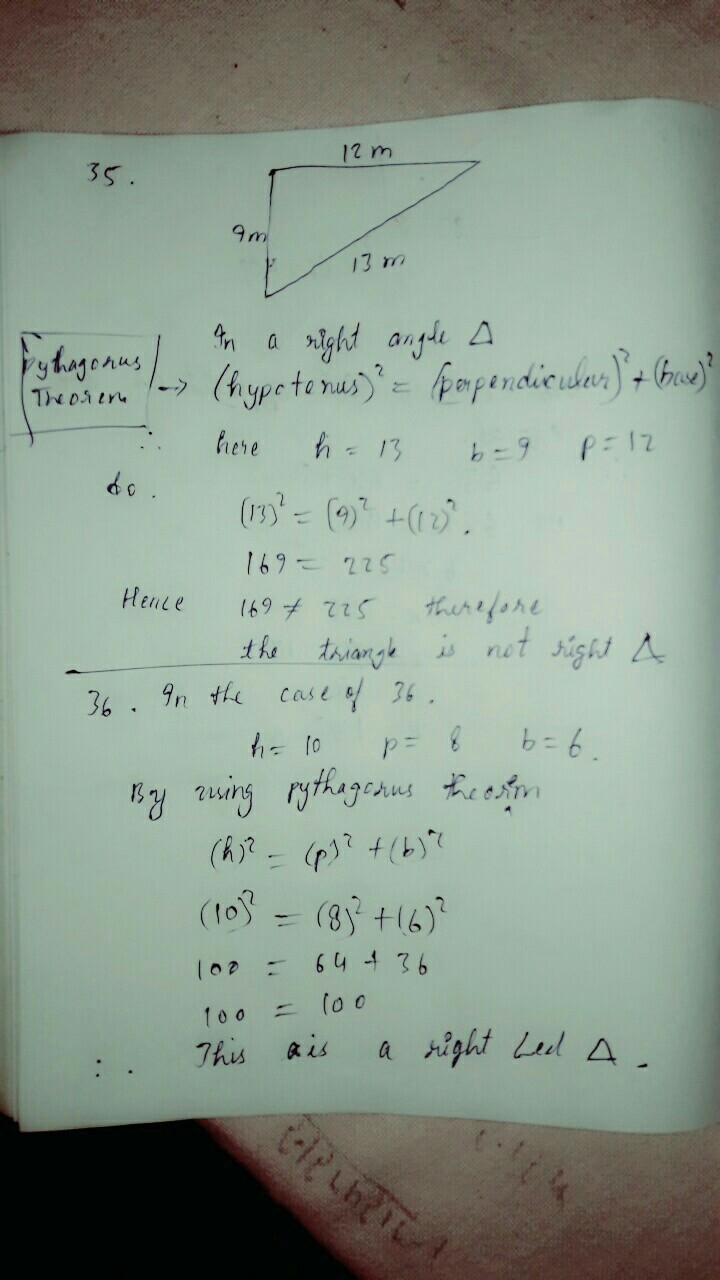 35.
12 m
9m
13 m
In a right angle Δ
Pythagorus
Theorem
→ (hypotenus)² = (perpendicular)² + (base)²
∴ here h = 13 b = 9 p = 12
so.
(13)² = (9)² + (12)².
169 = 225
Hence 169 ≠ 225 therefore
the triangle is not right Δ
36. In the case of 36.
h = 10 p = 8 b = 6.
By using pythagorus theorm
(h)² = (p)² + (b)²
(10)² = (8)² + (6)²
100 = 64 + 36
100 = 100
∴ This is a right Led Δ.